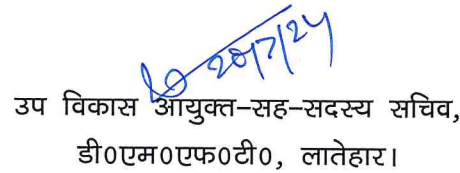 20/7/24
उप विकास आयुक्त–सह–सदस्य सचिव,
डी०एम०एफ०टी०, लातेहार।